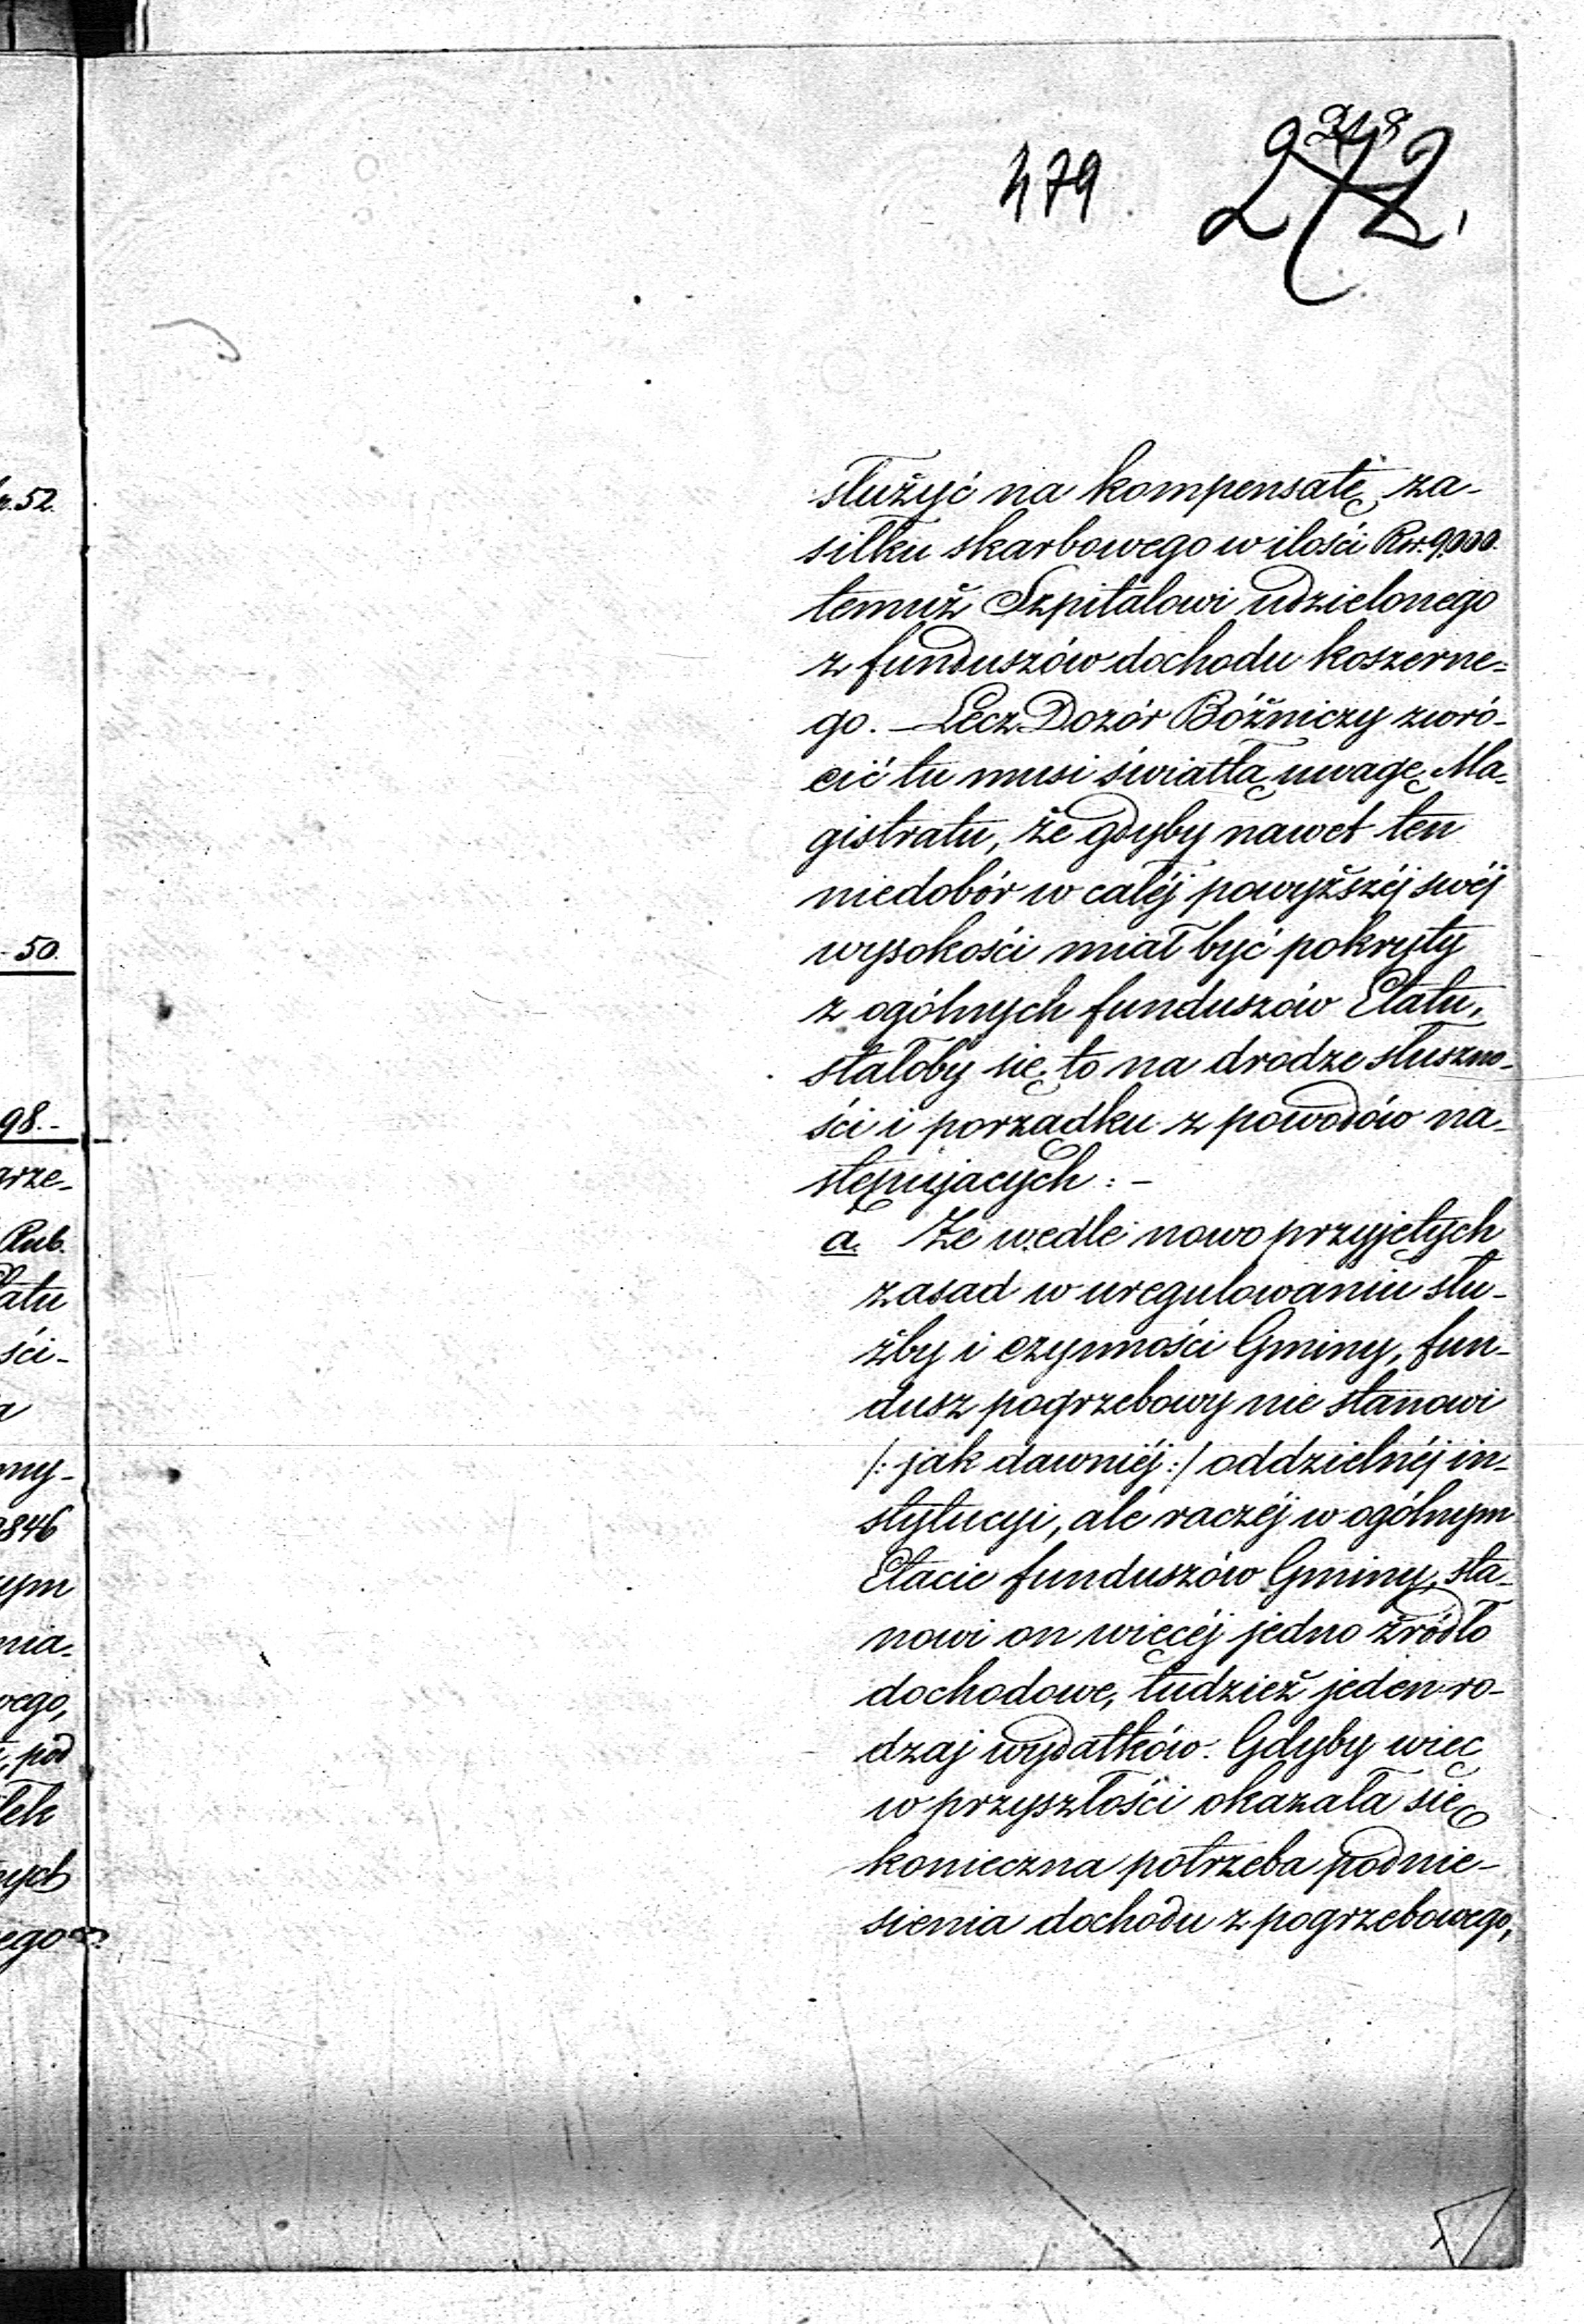 479
służyć na kompensatę za-
siłku skarbowego w ilości Rsr. 9,000.
temuż Szpitalowi udzielonego
z funduszów dochodu koszerne-
go. — Lecz Dozór Bóżniczy zwró-
cić tu musi światłą uwagę Ma-
gistratu, że gdyby nawet ten
niedobór w całéj powyższéj swéj
wysokości miał być pokryty
z ogólnych funduszów Etatu,
stałoby się to na drodze słuszno-
ści i porządku z powodów na-
stępujących: —
a. Że wedle nowo przyjętych
zasad w uregulowaniu słu-
żby i czynności Gminy, fun-
dusz pogrzebowy nie stanowi
/: jak dawniéj :/ oddzielnéj in-
stytucyi, ale raczéj w ogólnym
Etacie funduszów Gminy, sta-
nowi on więcéj jedno źródło
dochodowe, tudzież jeden ro-
dzaj wydatków. Gdyby więc
w przyszłości okazała się
konieczna potrzeba podnie-
sienia dochodu z pogrzebowego,
52.
50.
98.-
arze-
Rub.
ści-
ny-
846
ym
nia-
wego,
pod
ych
ego